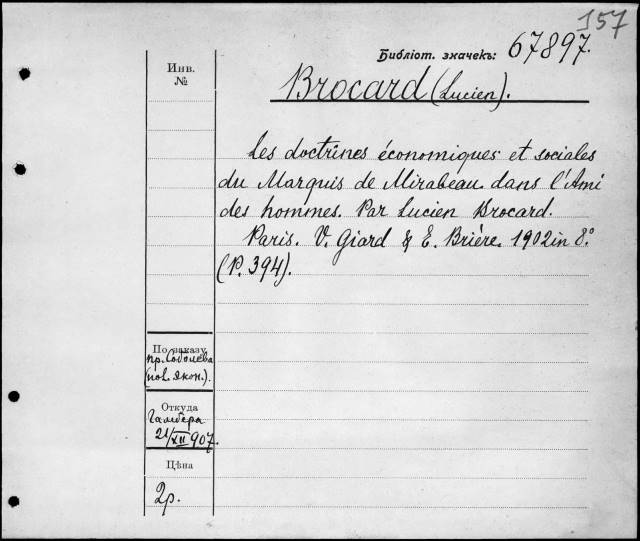 157
Библіот. значекъ: 67897.
Инв.
№
Brocard (Lucien).
Les doctrines économiques et sociales
du Marquis de Mirabeau dans l'Ami
des hommes. Par Lucien Brocard.
Paris. V. Giard & E. Brière. 1902 in 8°.
(P. 394).
По заказу
пр. Соболева
(пов. экон.).
Откуда
Гамбера
21/XII 907.
Цѣна
2р.